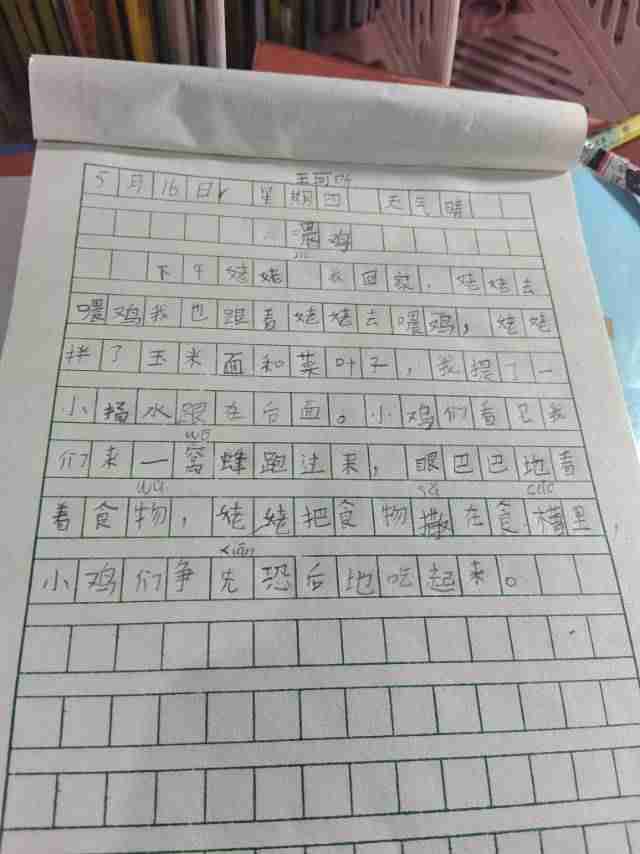 王可昕
5月16日 星期四 天气晴
喂鸡
下午姥姥 回家,姥姥去
喂鸡我也跟着姥姥去喂鸡,姥姥
拌了玉米面和菜叶子,我提了一
小桶水跟在后面。小鸡们看见我
wō
们来一窝蜂跑过来,眼巴巴地看
wù sǎ cáo
着食物,姥姥把食物撒在食槽里,
xiān
小鸡们争先恐后地吃起来。